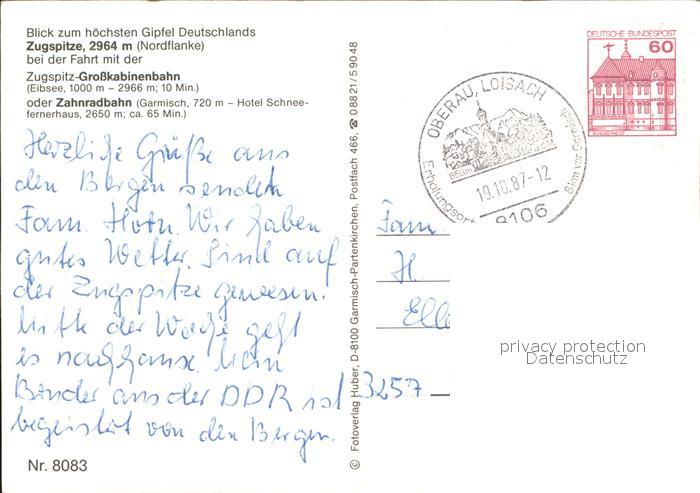 Blick zum höchsten Gipfel Deutschlands
Zugspitze, 2964 m (Nordflanke)
bei der Fahrt mit der
Zugspitz-Großkabinenbahn
(Eibsee, 1000 m – 2966 m; 10 Min.)
oder Zahnradbahn (Garmisch, 720 m – Hotel Schnee-
fernerhaus, 2650 m; ca. 65 Min.)
Herzliche Grüße aus
den Bergen senden
Fam. Wir haben
gutes Wetter. Sind auf
der Zugspitze gewesen.
Mitte der Woche geht
es nachhause. Mein
Bruder aus der DDR ist
begeistert von den Bergen.
Nr. 8083
© Fotoverlag Huber, D-8100 Garmisch-Partenkirchen, Postfach 466, ☎ 08821/59048
DEUTSCHE BUNDESPOST
60
OBERAU, LOISACH
860m
19.10.87-12
Erholungsort
8 km vor Garmisch
8106
Fam.
H.
Elle
3257
privacy protection
Datenschutz